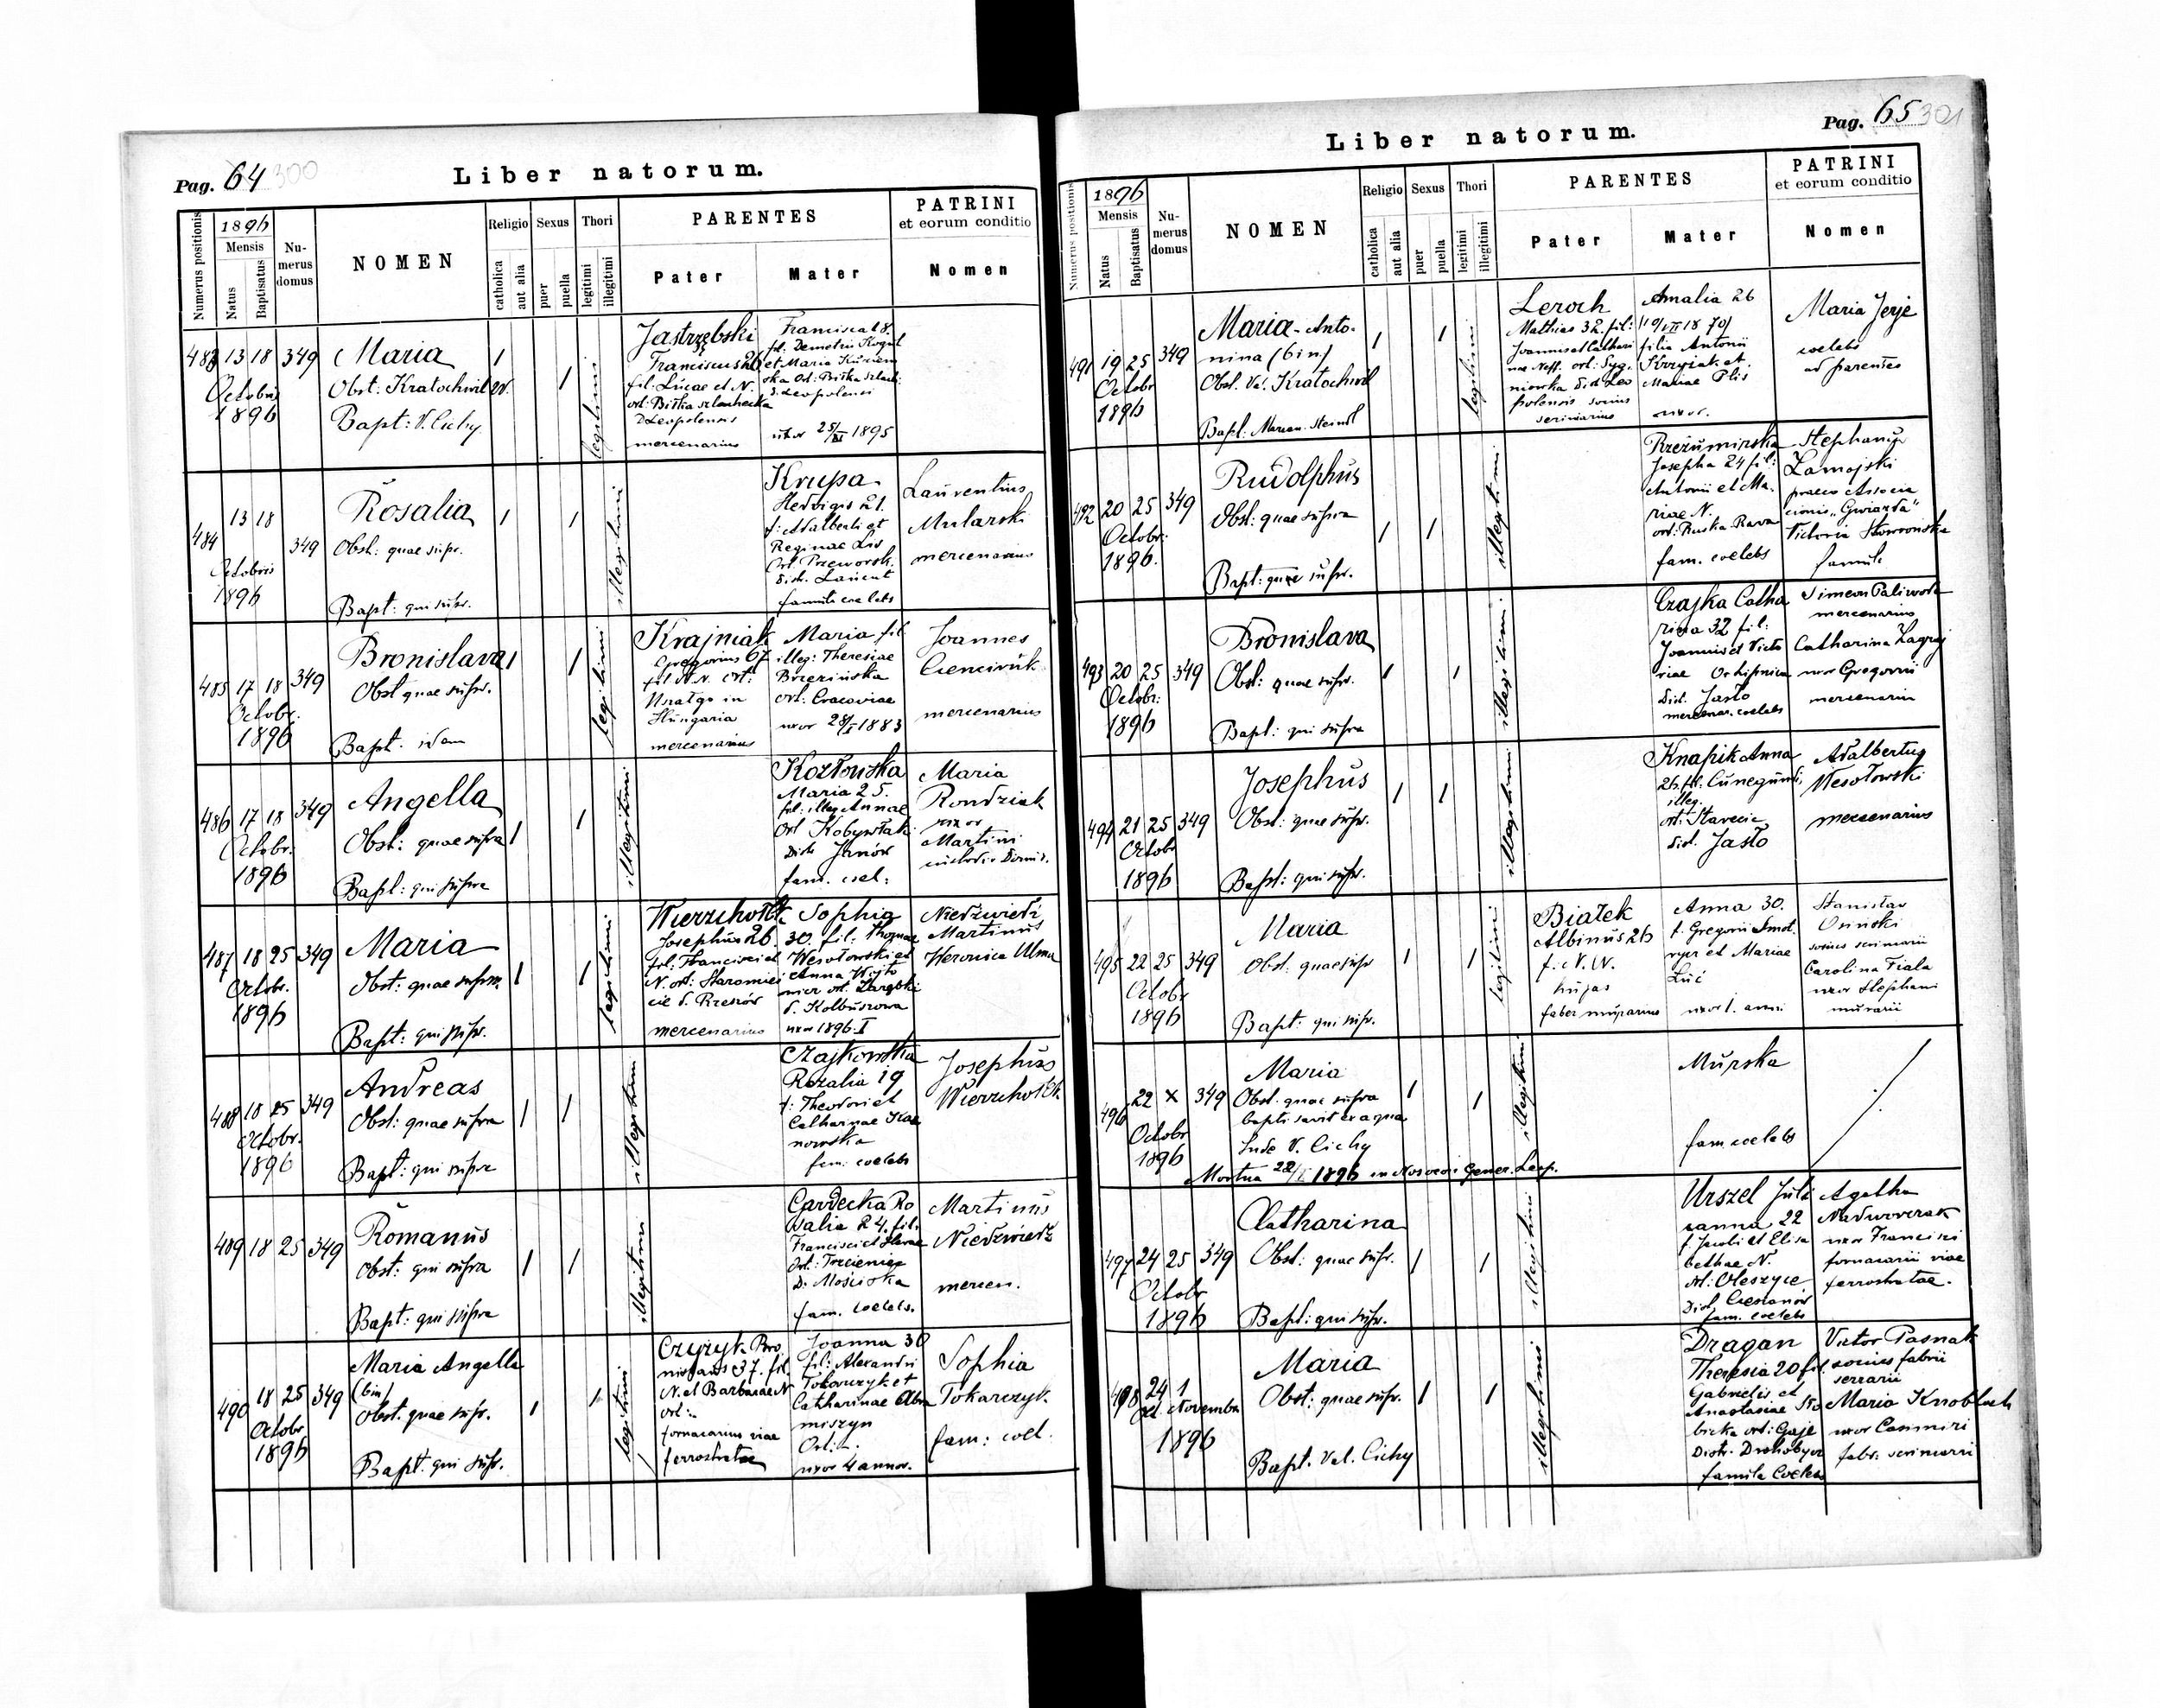 Pag. 64 300
Liber natorum.
Numerus positionis
1896
Mensis
Natus
Baptisatus
Nu-
merus
domus
NOMEN
Religio
catholica
aut alia
Sexus
puer
puella
Thori
legitimi
illegitimi
PARENTES
Pater
Mater
PATRINI
et eorum conditio
Nomen
483 13 18 349
Octobris
1896
Maria
Obst: Kratochwil W.
Bapt: V. Cichy
legitimi
Jastrzębski
Franciscus 26
fil: Lucae et N.
ort: Biłka szlachecka
D. Leopolensis
mercenarius
Francisca 18.
fil. Demetrii
et Maria
ort: Biłka szlach:
D. Leopolensi
uxor 25/XI 1895
484 13 18 349
Octobris
1896
Rosalia
Obst: quae supr.
Bapt: qui supr.
illegitimi
Krupa
Hedvigis 21.
f: Adalberti et
Reginae Lis
Ort. Przeworsk
Distr. Lancut
famula coelebs
Laurentius
Mularski
mercenarius
485 17 18 349
Octobr.
1896
Bronislava
Obst quae supr.
Bapt. idem
legitimi
Krajniak
Gregorius 67
fil N.N. ort:
in
Hungaria
mercenarius
Maria fil
illeg: Theresiae
Brzezinska
ort: Cracoviae
uxor 28/I 1883
Joannes
Cienciruk
mercenarius
486 17 18 349
Octobr.
1896
Angella
Obst: quae supra
Bapt: qui supra
illegitimi
Kozłowska
Maria 25.
fil: illeg Annae
Ort
Distr Janów
fam. coel:
Maria
Rondziak
uxor
Martini
487 18 25 349
Octobr.
1896
Maria
Obst: quae supra.
Bapt: qui supr.
legitimi
Wierzchołek
Josephus 26.
fil: Francisci et
N. ort: Staromieś
cie d. Rzeszów
mercenarius
Sophia
30. fil: Thomae
Wesołowski et
Anna Wójto
wicz ort. Zarębki
d. Kolbuszowa
uxor 1896. I
Niedzwiedz
Martinus
Veronica Ulma
488 18 25 349
Octobr.
1896
Andreas
Obst: quae supra
Bapt: qui supra
illegitimi
Czajkowska
Rozalia 19
f: Theodori et
Catharinae
fam: coelebs
Josephus
Wierzchołek
489 18 25 349
Romanus
Obst: qui supra
Bapt: qui supra
illegitimi
Gardecka Ro
salia 24. fil.
Francisci et
Ort: Trzcieniec
D. Mościska
fam. coelebs.
Martinus
Niedzwiedz
mercen.
490 18 25 349
Octobr
1896
Maria Angella
(bin)
Obst. quae supr.
Bapt. qui supr.
legitimi
Czyżyk Bro
nislaus 37. fil.
N. et Barbarae N
ort: -
fornacarius viae
ferrostratae
Joanna 30
fil: Alexandri
Tokarczyk et
Catharinae Abra
miszyn
Ort: -.
uxor 4 annor.
Sophia
Tokarczyk
fam: coel.
Pag. 65 301
Liber natorum.
Numerus positionis
1896
Mensis
Natus
Baptisatus
Nu-
merus
domus
NOMEN
Religio
catholica
aut alia
Sexus
puer
puella
Thori
legitimi
illegitimi
PARENTES
Pater
Mater
PATRINI
et eorum conditio
Nomen
491 19 25 349
Octobr
1896
Maria - Anto-
nina (bin)
Obst. Val. Kratochwil
Bapt: Marian. Steindl
legitimi
Leroch
Mathias 32. fil:
Joannis et Cathari
nae Neff. ort: Syg-
niowka Dis Leo
polensis socius
scriniarius
Amalia 26
filia Antonii
Krzyżak et
Mariae Plis
uxor.
Maria Jerje
coelebs
ad parentes
492 20 25 349
Octobr.
1896.
Rudolphus
Obst: quae supra
Bapt: quae supr.
illegitimi
Josepha 24 fil:
Antonii et Ma-
riae N.
ort: Ruska Rawa
fam. coelebs
Stephanus
Zamojski
praeco Associa
cionis „Gwiazda"
Victoria Skowrońska
famula
493 20 25 349
Octobr:
1896
Bronislava
Obst: quae supr.
Bapt: qui supra
illegitimi
Czajka Catha
rina 32 fil:
Joannis et Victo
riae
Dist. Jasło
mercenar. coelebs
Simeon Paliwoda
mercenarius
Catharina Zagraj
uxor Gregorii
mercenarii
494 21 25 349
Octobr
1896
Josephus
Obst: quae supr.
Bapt: qui supr.
illegitimi
Knapik Anna
26. fil. Cunegundis
illeg.
ort:
Dist. Jasło
Adalbertus
Wesołowski
mercenarius
495 22 25 349
Octobr
1896
Maria
Obst. quae supr
Bapt: qui supr.
legitimi
Białek
Albinus 26
f. N.N.
hujas
faber murarius
Anna 30.
f. Gregorii
et Mariae
Łuć
uxor 1. anni
Stanislav
Osinski
socius scriniarii
Carolina Fiala
uxor Stephani
murarii
496 22 X 349
Octobr
1896
Maria
Obst. quae supra
baptisavit ex aqua
Inde V. Cichy
Mortua 22/X 1896 in Nosocom. Gener. Leop.
illegitimi
Murska
fam. coelebs
497 24 25 349
Octobr
1896
Catharina
Obst: quae supr.
Bapt: qui supr.
illegitimi
Urszel Juli
anna 22
f. Jacobi et Elisa
bethae N.
ort: Oleszyce
Dist. Cieszanów
fam. coelebs
Agatha
Nadwoerzak
uxor Francisci
fornacarii viae
ferrostratae.
498 24 1 349
Oct. Novembr
1896
Maria
Obst: quae supr.
Bapt. Val. Cichy
illegitimi
Dragan
Theresia 20 fil.
Gabrielis et
Anastasiae Sło
bicka ort: Gaje
Distr. Drohobycz
famula coelebs
Victor Pasnak
socius fabrii
serrarii
Maria Knobloch
uxor Casimiri
fabr: scriniarii